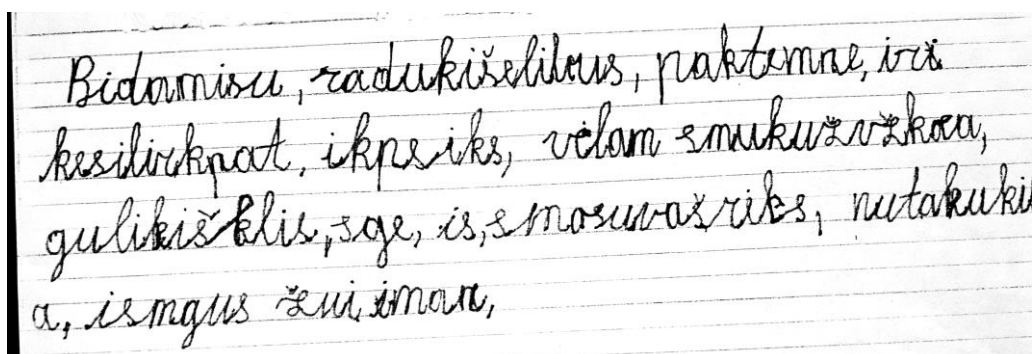 Bidamisu, radukišelibus, paktemne, iri
kesilirkpat, ikpsiks, vėlam smukužvžkoa,
gulikišklis, sge, is, smosuvašriks, nutakuki
a, ismgus žui, iman,